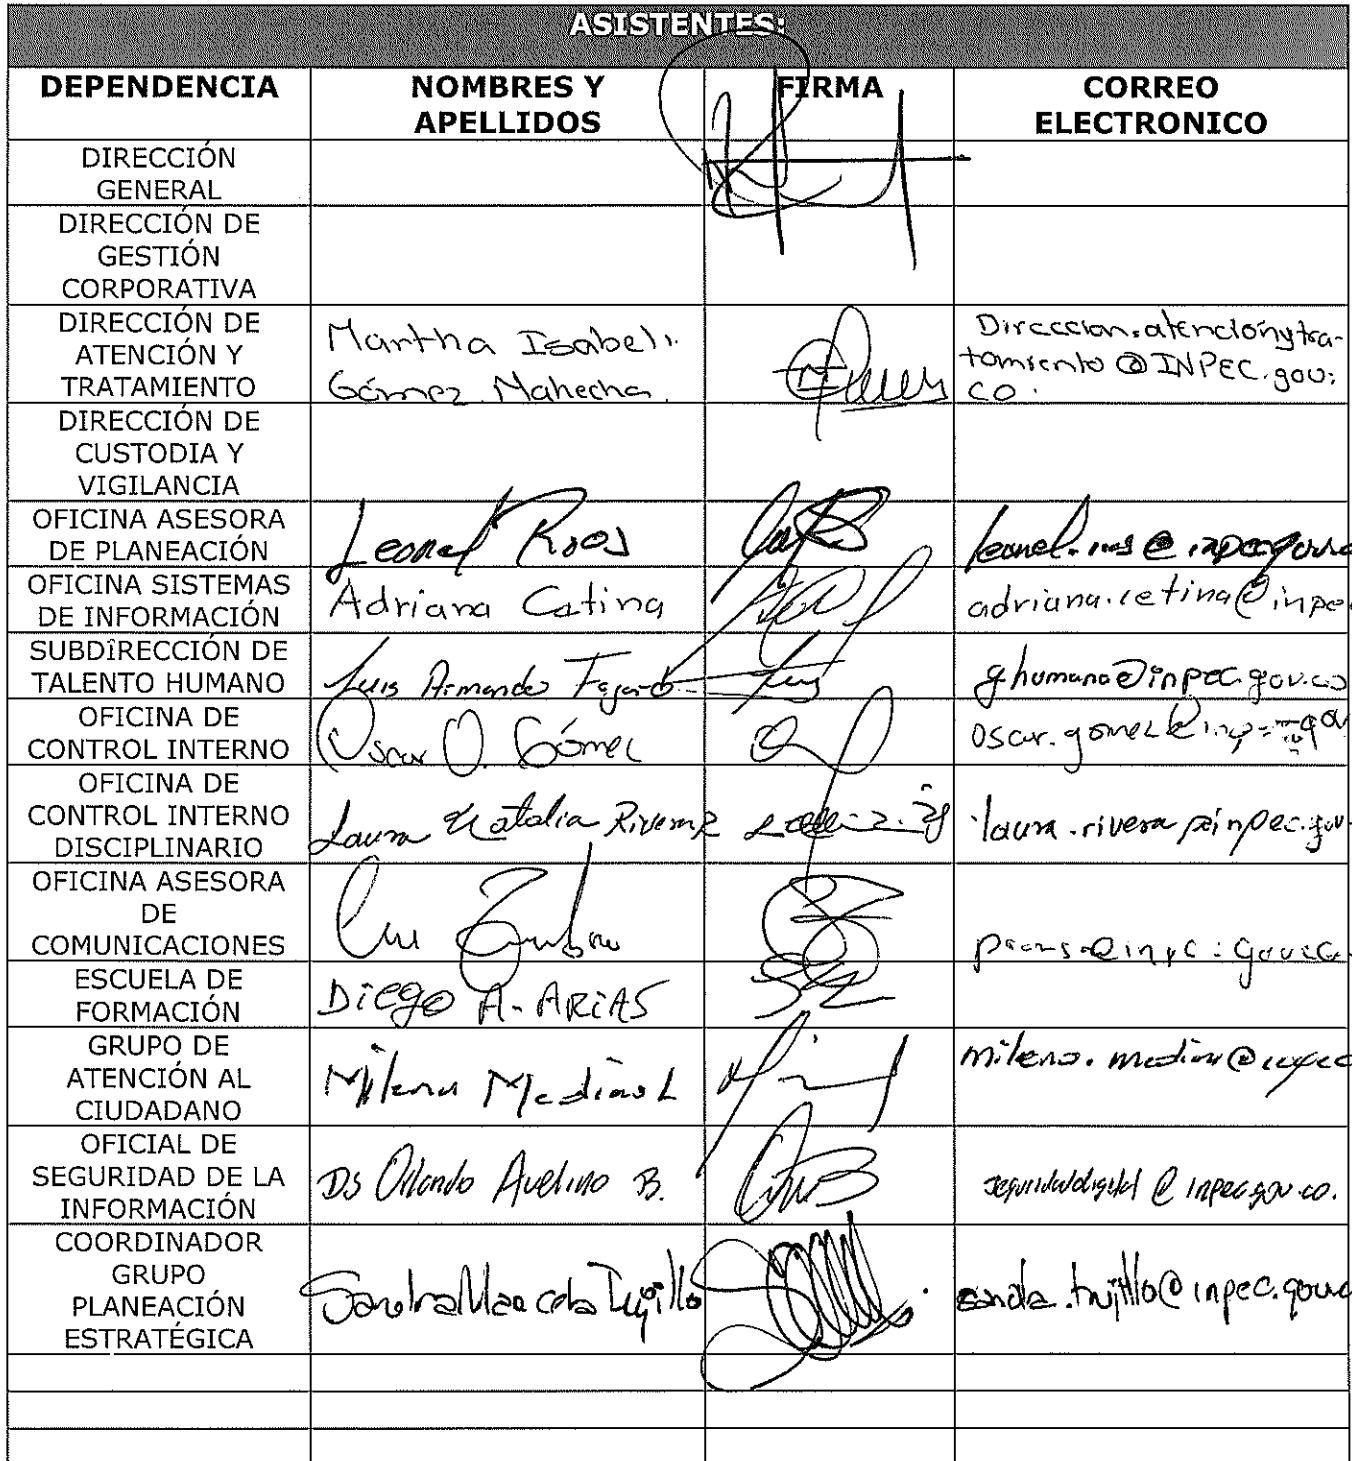 ASISTENTES:
DEPENDENCIA NOMBRES Y APELLIDOS FIRMA CORREO ELECTRONICO
DIRECCIÓN GENERAL
DIRECCIÓN DE GESTIÓN CORPORATIVA
DIRECCIÓN DE ATENCIÓN Y TRATAMIENTO Martha Isabel Gómez Mahecha Direccion.atenciónytratamiento@INPEC.gov.co.
DIRECCIÓN DE CUSTODIA Y VIGILANCIA
OFICINA ASESORA DE PLANEACIÓN Leonel Rios
OFICINA SISTEMAS DE INFORMACIÓN Adriana Cetina adriana.cetina@inpec
SUBDIRECCIÓN DE TALENTO HUMANO Luis Armando Fajardo g.humano@inpec.gov.co
OFICINA DE CONTROL INTERNO Oscar O. Gómez
OFICINA DE CONTROL INTERNO DISCIPLINARIO Laura Natalia Rivera R laura.rivera@inpec.gov.
OFICINA ASESORA DE COMUNICACIONES
ESCUELA DE FORMACIÓN Diego A. ARiAS
GRUPO DE ATENCIÓN AL CIUDADANO Milena Medina L milena.medina@inpec
OFICIAL DE SEGURIDAD DE LA INFORMACIÓN DS Orlando Avelino B. seguridaddigital@inpec.gov.co.
COORDINADOR GRUPO PLANEACIÓN ESTRATÉGICA Sandra Marcela Trujillo sandra.trujillo@inpec.gov.co